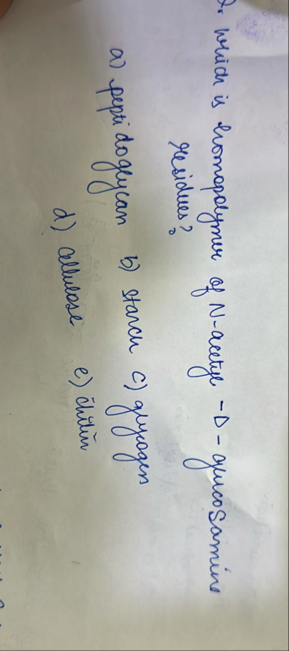 Q. which is homopolymer of N-acetyl-D-glucosamine
residues?
a) peptidoglycan b) starch c) glycogen
d) cellulose e) chitin